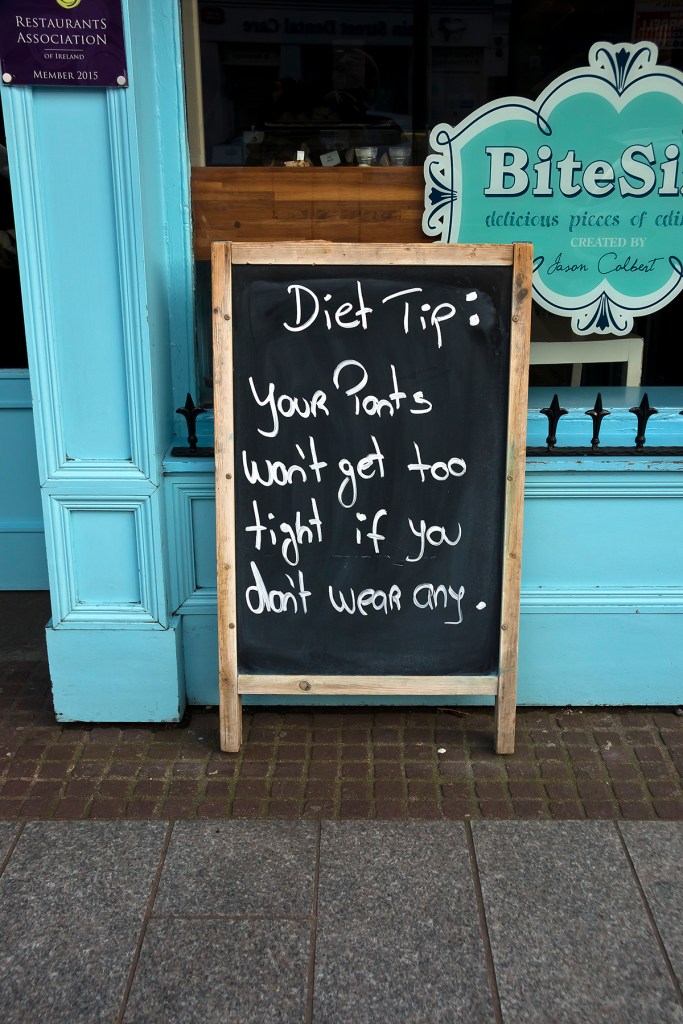 RESTAURANTS
ASSOCIATION
OF IRELAND
MEMBER 2015
BiteSi
delicious pieces of
CREATED BY
Jason Colbert
Diet Tip:
Your Pants
won't get too
tight if you
don't wear any.